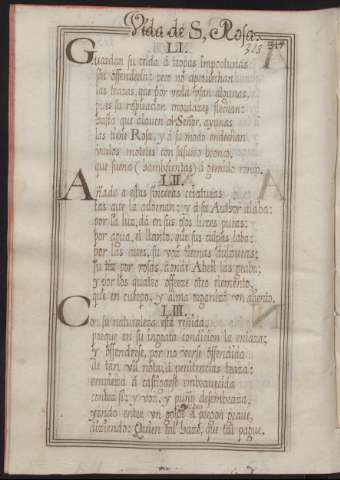 Vida de S. Rosa.
313 317
LI.
Guardan su celda á tropas importunas
sin offenderla; pero no aprovechan
las trazas, que por vella vsan algunas,
pues su respiracion mordazes flechan:
hasta que alaven al Señor, ayunas
las tiene Rosa, y á su modo endechan
varios motetes con susurro bronco,
que suena (zambientas) á gemido ronco.
LII.
Añade a estas sinceras criaturas
las que la adornan; y á su Author alaba:
por la luz, dá en sus ojos luzes puras;
por agua, el llanto, que sus culpas laba;
por las aues, su voz tiernas dulzuras;
su tez por rosas, donde Abril las graba;
y por los quatro offreze otro elemento,
que en cuerpo, y alma organizó vn aliento.
LIII.
Con su naturaleza está reñida,
porque en su ingrata condicion la enlaza;
y offenderse, por no verse offendida
de tan vil nota, á penitencias traza:
empieza á castigarse embrauecida
contra si; y voz, y puño desembraza,
yendo entre vn golpe, y pregon graue,
diziendo: Quien tal haze, que tal pague.